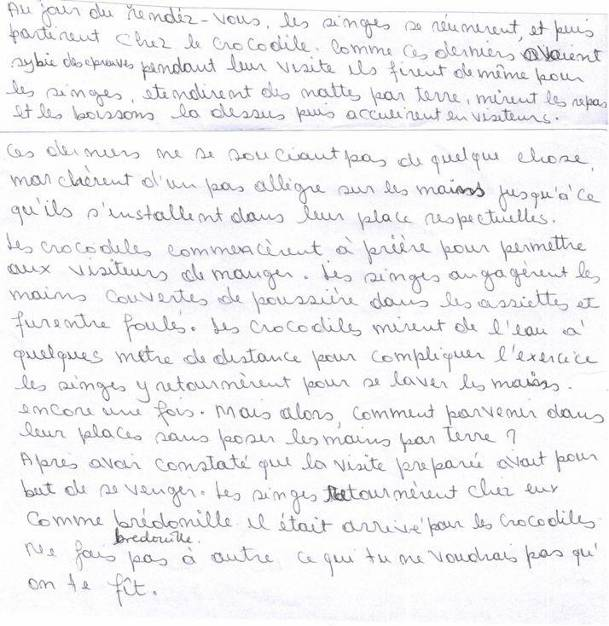 Au jour du rendéz-vous, les singes se réunirent, et puis
partirent chez le crocodile. Comme ces derniers avaient
sybie des epreuves pendant leur visite ils firent de même pour
les singes, etendirent des nattes par terre, mirent les repas
et les boissons la dessus puis accueirent en visiteurs.
Ces derniers ne se souciant pas de quelque chose,
marchèrent d'un pas allègre sur les mains jusqu'à ce
qu'ils s'installent dans leur place respectuelles.
Les crocodiles commencèrent à prière pour permettre
aux visiteurs de manger. Les singes angagèrent les
mains couvertes de poussière dans les assiettes et
furentre foulés. Les crocodiles mirent de l'eau à
quelques mètre de distance pour compliquer l'exercice
les singes y retournèrent pour se laver les mains.
encore une fois. Mais alors, comment parvenir dans
leur places sans poser les mains par terre ?
Apres avoir constaté que la visite preparée avait pour
but de se venger. Les singes retournèrent chez eux
comme brédomille il était arrivé pour les crocodiles
bredouille.
Ne fais pas à autre ce qui tu ne voudrais pas qu'
on te fît.